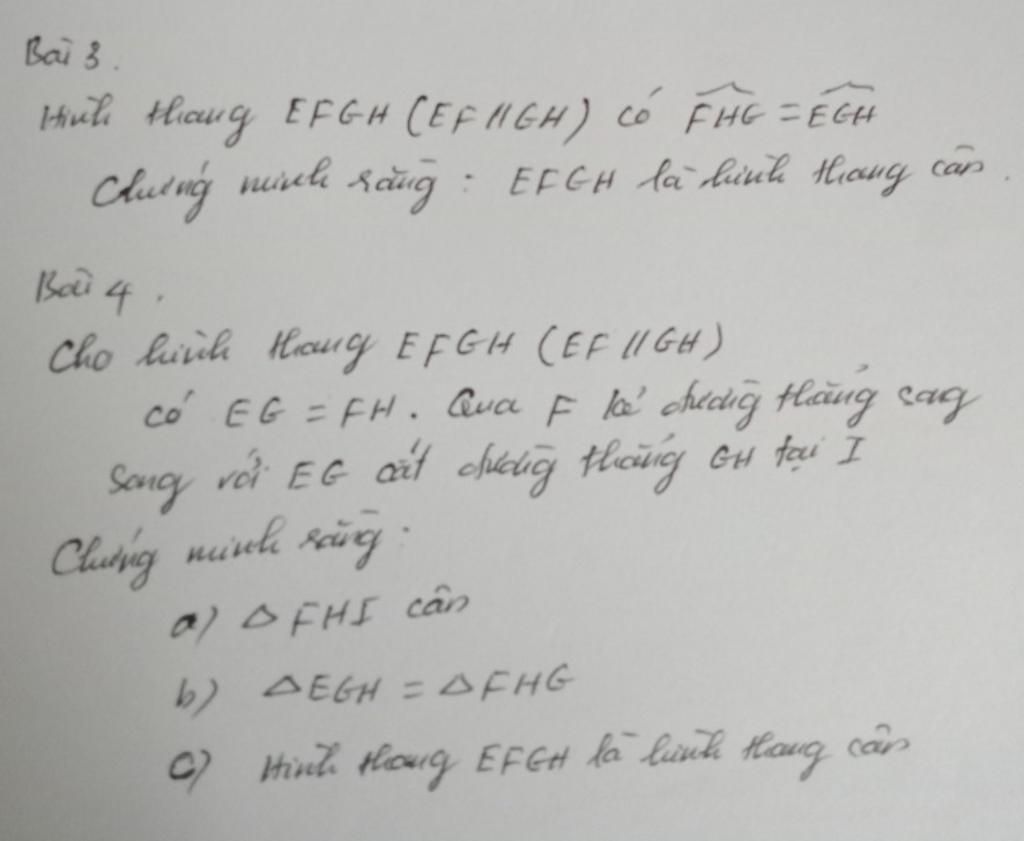 Bài 3.
Hình thang EFGH (EF // GH) có FHG = EGH
Chứng minh rằng : EFGH là hình thang cân.
Bài 4.
Cho hình thang EFGH (EF // GH)
có EG = FH. Qua F kẻ đường thẳng sog
song với EG cắt đường thẳng GH tại I
Chứng minh rằng :
a) △ FHI cân
b) △EGH = △FHG
c) Hình thang EFGH là hình thang cân